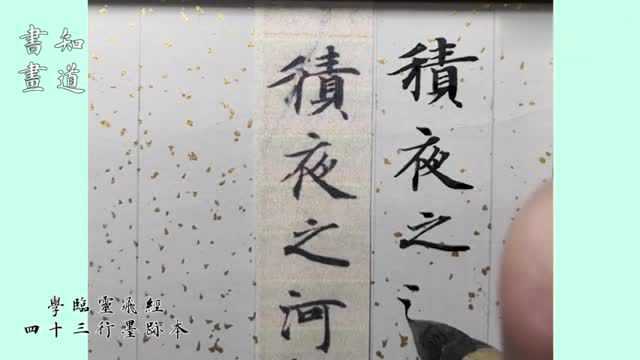 知道
書畫
積夜之
積夜之河
學臨靈飛經
四十三行墨跡本